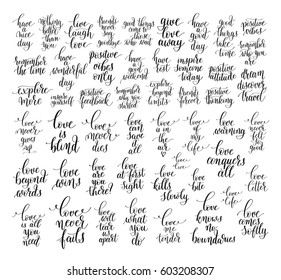 have
a nice
day
nothing
better
than
love
live
laugh
love
friends
never
say
goodbye
good things
come to
those
who wait
give
love
away
have
a good
day
take
some
rest
positive
vibes
remember
who you
are
remember
the time
have a
wonderful
day
positive
vibes
only
have
the best
weekend
inspire
someone
today
positive
attitude
dream
discover
travel
explore
more
positive
feedback
friends
forever
positive
thinking
love
never
gives
up
love
is
blind
love
never
dies
love
can
save
us
love
is in
the
air
love
my
life
love
warning
love
never
love
conquers
all
love
beyond
words
love
wins
love
are you
there?
love
at first
sight
love
kills
slowly
love
bite
love
life
love
letter
love
is all
you
need
love
never
fails
love
will
tear
us
apart
love
what
you
do
love
me
tender
love
knows
no
boundaries
love
comes
softly
603208307